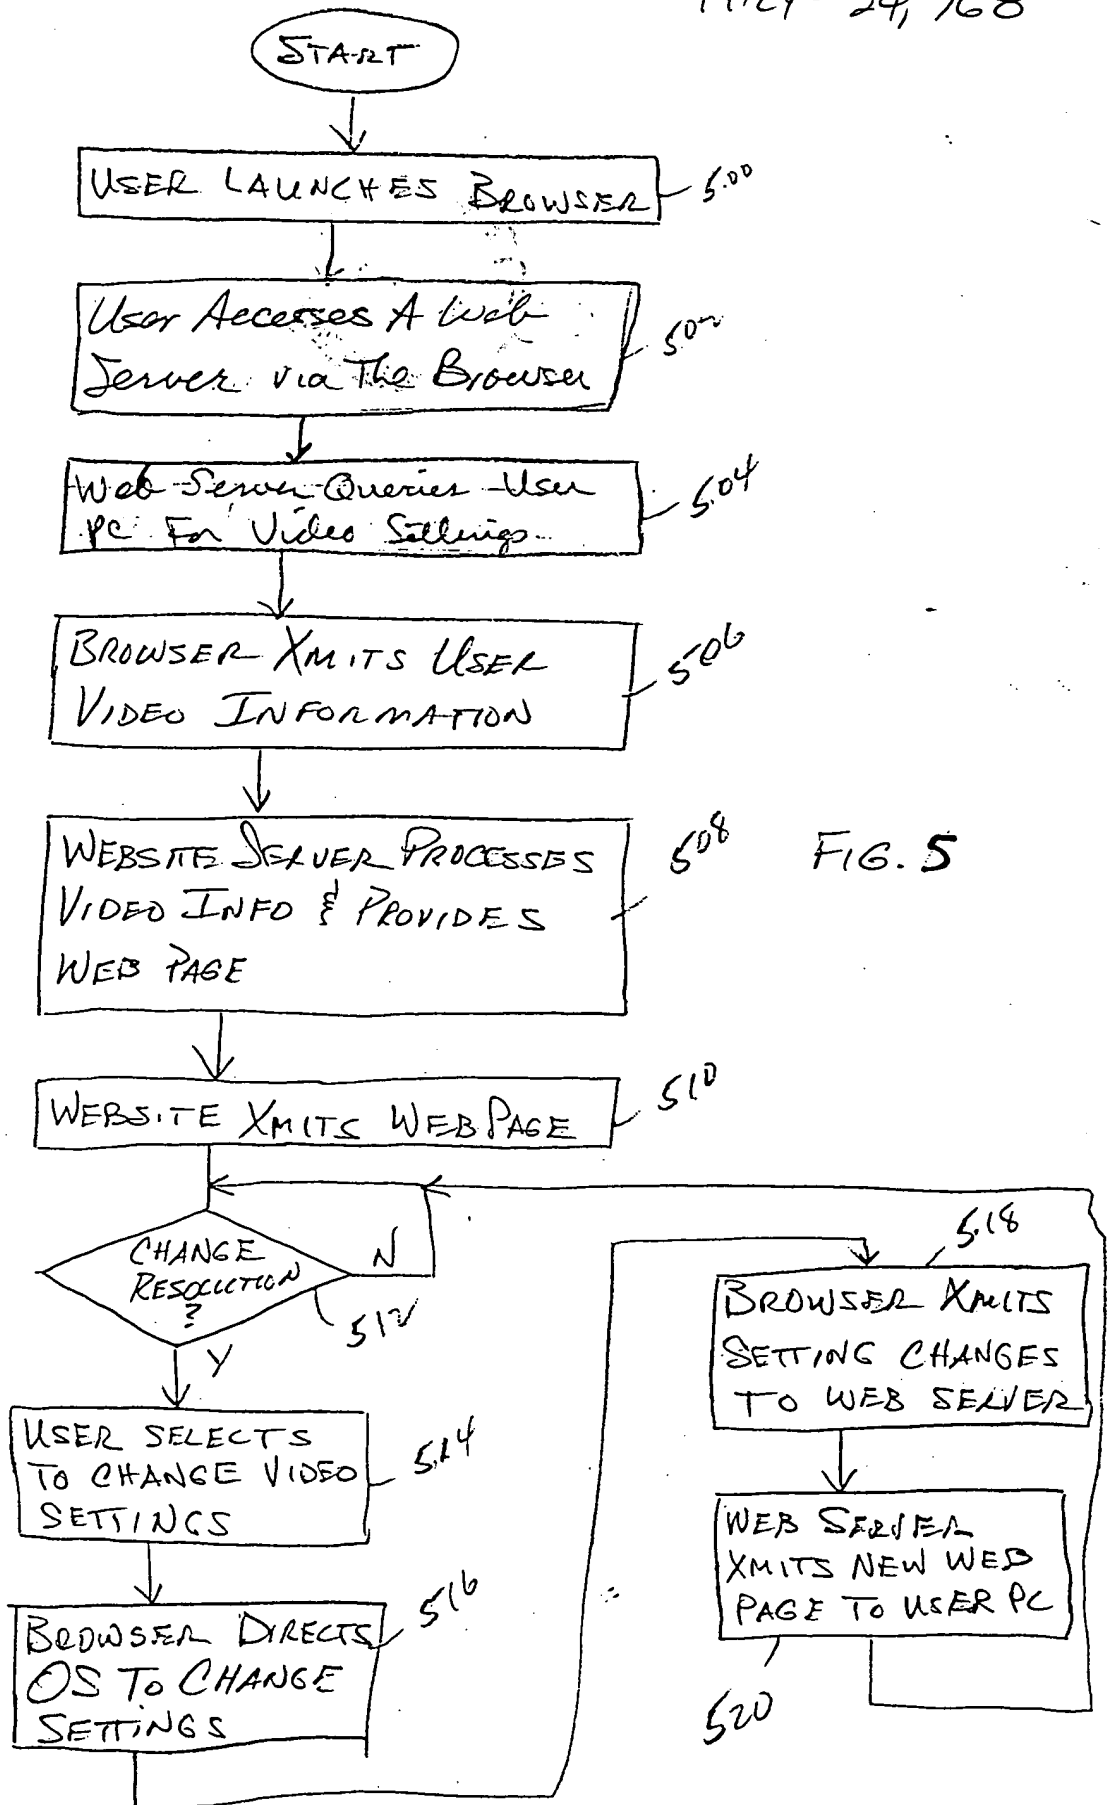 24, 768
START
USER LAUNCHES BROWSER
500
User Accesses A Web
Server via The Browser
502
Web Server Queries User
PC For Video Settings
504
BROWSER XMITS USER
VIDEO INFORMATION
506
WEBSITE SERVER PROCESSES
VIDEO INFO & PROVIDES
WEB PAGE
508
FIG. 5
WEBSITE XMITS WEB PAGE
510
CHANGE
RESOLUTION
?
N
512
Y
USER SELECTS
TO CHANGE VIDEO
SETTINGS
514
BROWSER DIRECTS
OS TO CHANGE
SETTINGS
516
518
BROWSER XMITS
SETTING CHANGES
TO WEB SERVER
WEB SERVER
XMITS NEW WEB
PAGE TO USER PC
520